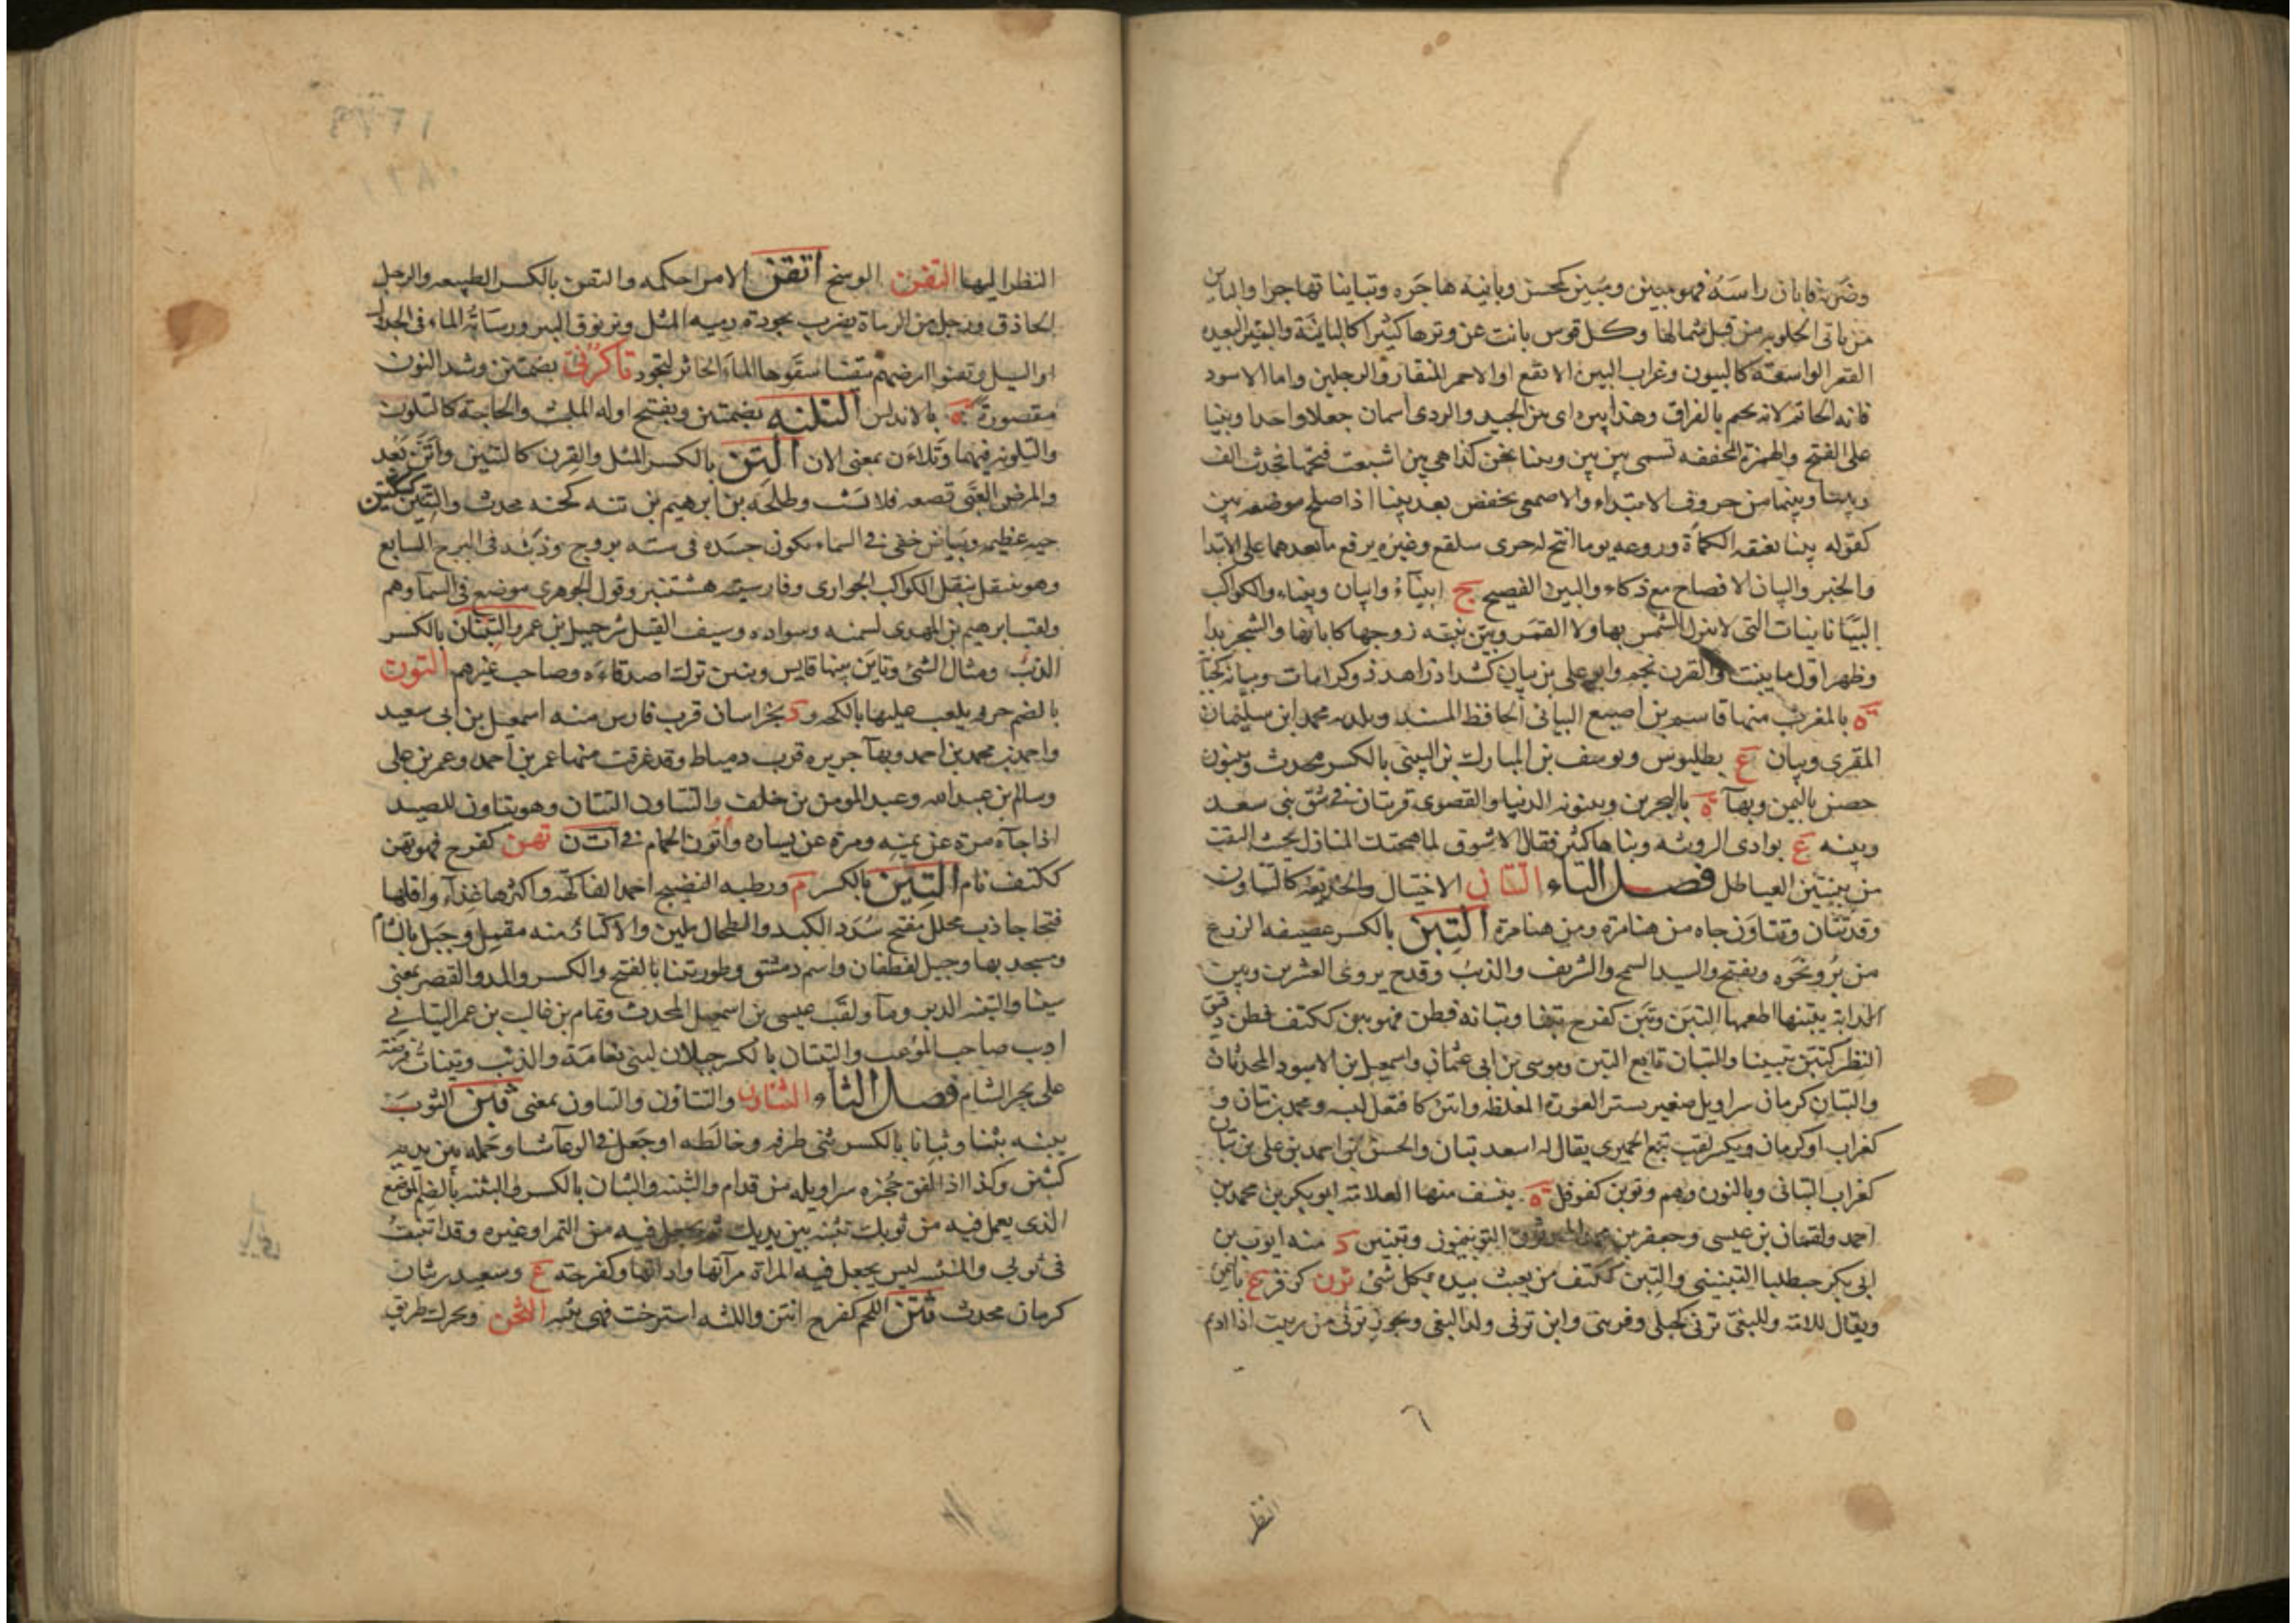 وضربه فابان راسه فهو مبين ومبين كمحسن وباينه هاجره وتباينا تهاجرا والباين
من ياتي الحلوبه من قبل شمالها وكل قوس بانت عن وترها كثيرا كالباينة والبئر البعيده
القعر الواسعة كالبيون وغراب البين الابقع او الاحمر المنقار والرجلين واما الاسود
فانه الحاتم لانه يحتم بالفراق وهذا بين بين اى بين الجيد والردى اسمان جعلا واحدا وبنيا
على الفتح والهمزة المخففه تسمى بين بين وبينا نحن كذا هي بين اشبعت فتحتها فحدثت الف
وبينا وبينما من حروف الابتداء والاصمعى يخفض بعد بينا اذا صلح موضعه بين
كقوله بينا تعنقه الكماة وروغه يوما اتيح له جرى سلفع وغيره يرفع ما بعدهما على الابتدا
والخبر والبيان الافصاح مع ذكاء والبين الفصيح ج ابيناء وابيان وبيناء والكواكب
البيانيات التى لا تنزل الشمس بها ولا القمر وبين بنته زوجها كابانها والشجر بدا
وظهر اول ما ينبت والقرن نجم وابو على بن بيان كشداد زاهد ذو كرامات وبيانه كجبا
ة بالمغرب منها قاسم بن اصبع البيانى الحافظ المسند وبلديه محمد ابن سليمان
المقرى وبيان ع ببطليوس ويوسف بن المبارك بن البينى بالكسر محدث وبينون
حصن باليمن وبهآ ة بالبحرين وبينونه الدنيا والقصوى قريتان فى شق بنى سعد
وبينه ع بوادى الرويثه وبناها كثير فقال الا شوق لما هيجتك المنازل بحيث التقت
من بينتين العياطل فصل التاء التتان الاختيال والخديعه كالتتاون
وقد تتان وتتاون جاه من هنا مرة ومن هنا مرة التبن بالكسر عصيفه الزرع
من بر ونحوه ويفتح والسيد السمح والشريف والذئب وقدح يروى العشرين وتبن
الدابه يتبنها اطعمها التبن وتبن كفرح تبنا وتبانه فطن فهو تبن ككتف فطن دقيق
النظر كتبن تتبينا والتبان بايع التبن وموسى بن ابى عثمان واسمعيل بن الاسود المحدثان
والتبان كرمان سراويل صغير يستر العورة المغلظه واتبن كافتعل لبسه ومحمد بن تبان و
كغراب او كرمان ويكسر لقب تبع الحميرى يقال له اسعد تبان والحسن بن احمد بن على بن تبان
كغراب التبانى وبالنون وهم وتوبن كفوفل ة بنسف منها العلامه ابو بكر بن محمد بن
احمد ولقمان بن عيسى وجعفر بن محمد المحدثون التوبنيون وتبنين د منه ايوب بن
ابى بكر خطلبا التبنينى والتبن ككتف من يعبث بيده بكل شئ ترن كزفر ع باليمن
ويقال للامه وللبغى ترنى كحبلى وفرينى وابن ترنى ولد البغى ويجوز ترنى من رنيت اذا اديم
انظر
النظر اليها التفن الوسخ اتقن الامر احكمه والتقن بالكسر الطبيعه والرجل
الحاذق ورجل من الرماة يضرب بجودة رميه المثل وترنوق البئر ورسابة الماء فى الجداول
او المسيل وتقنوا ارضهم تتقينا سقوها الماء الخاثر لتجود تاكرنى بضمتين وشد النون
مقصورة ة بالاندلس التلنه بضمتين ويفتح اوله الملبث والحاجة كالتلون
والتلونه فيهما وتلاءن بمعنى الان التن بالكسر المثل والقرن كالتنين واتن بعد
والمرض الصبى قصعه فلا يشب وطلحه بن ابرهيم بن تنه كجنه محدث والتنين كسكين
حيه عظيمه وبياض خفى فى السماء يكون جسده فى سته بروج وذنبه فى البرج السابع
وهو ينتقل تنقل الكواكب الجوارى وفارسيته هشتنبر وقول الجوهرى موضع فى السمآ وهم
ولقب ابرهيم بن المهدى لسمنه وسواده وسيف القيل شرحبيل بن عمرو التنان بالكسر
الذئب ومثال الشئ وتاين بينهما قايس وتنن ترك اصدقاءه وصاحب غيرهم التون
بالضم خرقه يلعب عليها بالكجه ود بخراسان قرب قاين منه اسمعيل بن ابى سعيد
واحمد بن محمد بن احمد وبهآ جزيره قرب دمياط وقد غرقت منها عمر بن احمد وعمر بن على
وسالم بن عبد الله وعبد المومن بن خلف والتتاون التتان وهو يتاون للصيد
اذا جآه مرة عن يمينه ومرة عن يساره واتون الحمام فى ات ن تهن كفرح فهو تهن
ككتف نام التين بالكسر م ورطبه النضيج احمد الفاكهه واكثرها غذآء واقلها
نفخا جاذب محلل مفتح سدد الكبد والطحال ملين والاكثار منه مقمل وجبل بالشام
ومسجد بها وجبل لغطفان واسم دمشق وطور تينا بالفتح والكسر والمد والقصر بمعنى
سينا والتينه الدبر ومآ ولقب عيسى بن اسمعيل المحدث وتمام بن غالب بن عمر التيانى
اديب صاحب الموعب والتينان بالكسر جبلان لبنى نعامة والذئب وتينات فرضه
على بحر الشام فصل الثاء التثاون والتثاؤن والتتاون بمعنى ثبن الثوب
يثبنه ثبنا وثبانا بالكسر ثنى طرفه وخاطه او جعل فى الوعآ شيا وحمله بين يديه
كتثبن وكذا اذا لفق حجزة سراويله من قدام والثبنه والثبان بالكسر والثبنه بالضم الموضع
الذى يحمل فيه من ثوبك تثنيه بين يديك ثم تجعل فيه من التمر او غيره وقد اثتبنت
فى ثوبى والمثبنه كيس يجعل فيه المراة مرآتها واداتها وكفرحه ع وسعيد بن ثبان
كرمان محدث ثتن اللحم كفرح انتن واللثه استرخت فهى ثتنه الثخن ويحرك طريق